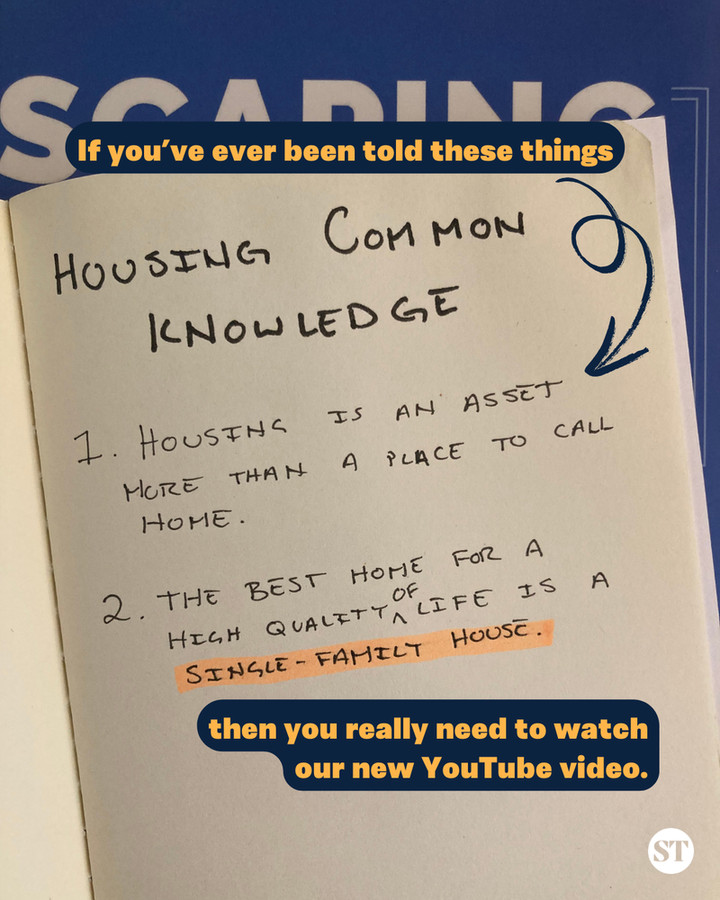 SCAPING
If you’ve ever been told these things
HOUSING COMMON
KNOWLEDGE
1. HOUSING IS AN ASSET
MORE THAN A PLACE TO CALL
HOME.
2. THE BEST HOME FOR A
HIGH QUALITY OF LIFE IS A
SINGLE-FAMILY HOUSE.
then you really need to watch
our new YouTube video.
ST